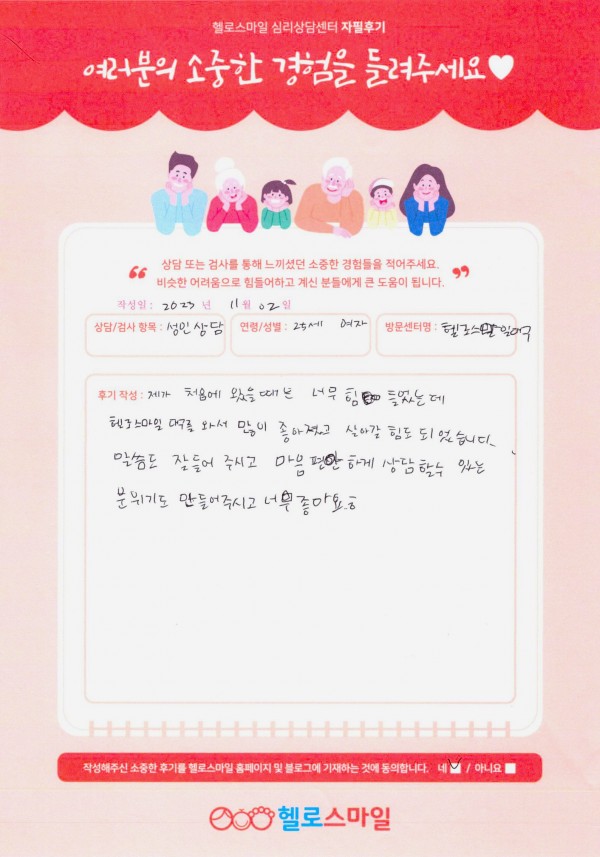 헬로스마일 심리상담센터 자필후기
여러분의 소중한 경험을 들려주세요♥
상담 또는 검사를 통해 느끼셨던 소중한 경험들을 적어주세요.
비슷한 어려움으로 힘들어하고 계신 분들에게 큰 도움이 됩니다.
작성일 : 2023 년 11 월 02 일
상담/검사 항목 : 성인상담 연령/성별 : 25세 여자 방문센터명 : 헬로스마일
후기 작성 : 제가 처음에 왔을때는 너무 힘 들었는데
헬로스마일 와서 많이 좋아졌고 살아갈 힘도 되었습니다.
말씀도 잘들어 주시고 마음 편안하게 상담할수 있는
분위기도 만들어주시고 너무 좋아요
작성해주신 소중한 후기를 헬로스마일 홈페이지 및 블로그에 기재하는 것에 동의합니다. 네 / 아니요
헬로스마일